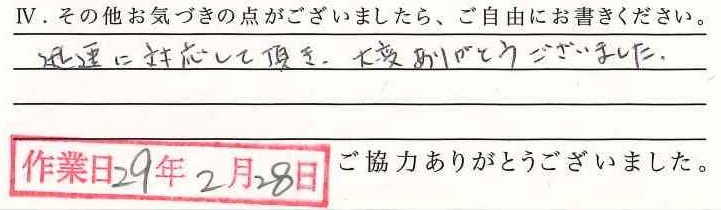 Ⅳ．その他お気づきの点がございましたら、ご自由にお書きください。
迅速に対応して頂き、大変ありがとうございました。
作業日29年2月28日
ご協力ありがとうございました。